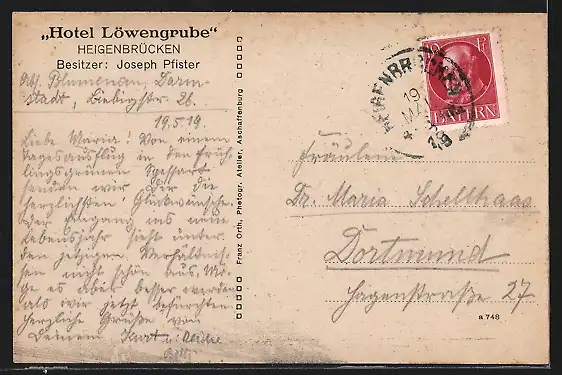 „Hotel Löwengrube“
HEIGENBRÜCKEN
Besitzer: Joseph Pfister
Abs. Blumenau, Darm-
stadt, Liebigstr. 26.
19.5.19.
Liebe Maria! Von einem
Tagesausflug in den früh-
lingsgrünen Spessart
senden wir Dir die
herzlichsten Glückwünsche.
Der Eingang ins neue
Lebensjahr sieht unter
den jetzigen Verhältnis-
sen nicht schön aus. Mö-
ge es aber besser werden
als wir jetzt befürchten.
Herzliche Grüße von
Deinem Kurt u.
Franz Orth, Photogr. Atelier, Aschaffenburg
HEIGENBRÜCKEN
19 MAI
10 PF
BAYERN
Fräulein
Dr. Maria Schellhaas
Dortmund
Hagenstraße 27
a 748